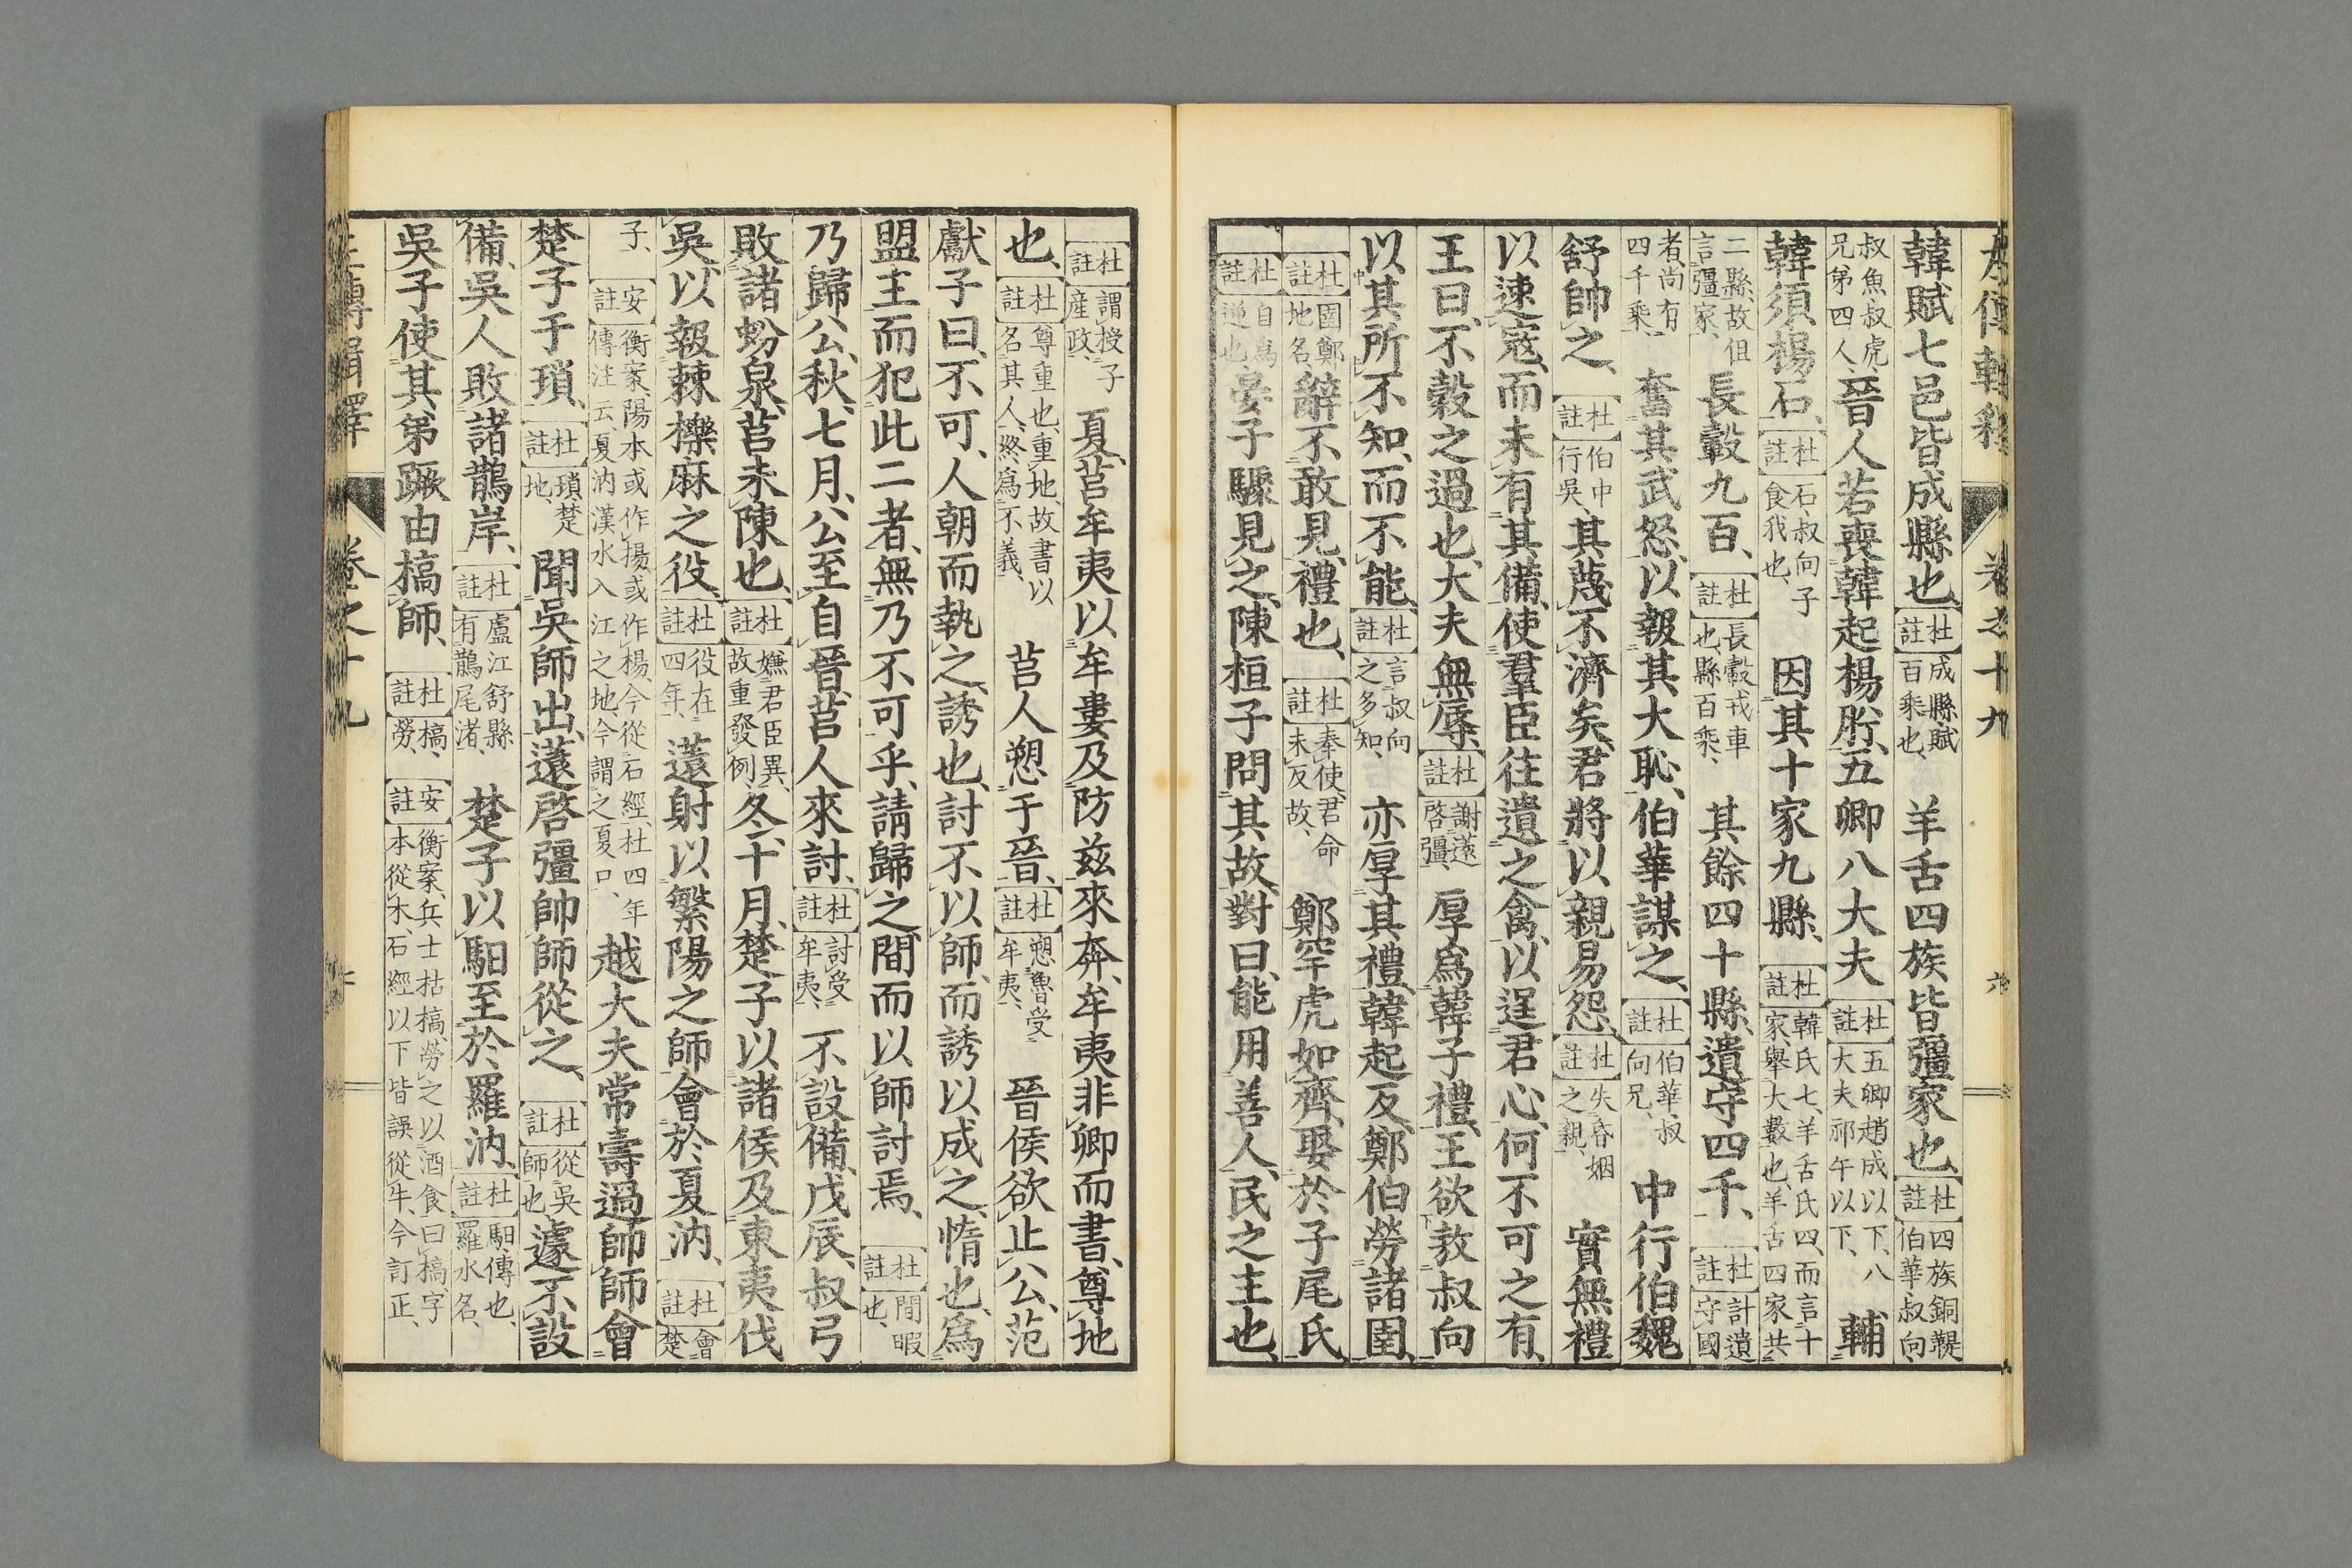 左傳輯釋　卷之十九　六
韓賦七邑皆成縣也、杜註成縣、賦百乘也、羊舌四族皆彊家也、杜註四族、銅鞮伯華、叔向、
叔魚、叔虎、兄弟四人、晉人若喪韓起楊肸、五卿八大夫杜註五卿趙成以下、八大夫祁午以下、輔
韓須楊石、杜註石、叔向子食我也、因其十家九縣、杜註韓氏七、羊舌氏四、而言十家、舉大數也、羊舌四家共
二縣、故但言彊家、長轂九百、杜註長轂、戎車也、縣百乘、其餘四十縣、遺守四千、杜註計遺守國
者、尚有四千乘、奮其武怒、以報其大恥、伯華謀之、杜註伯華、叔向兄、中行伯魏
舒帥之、杜註伯中行吳、其蔑不濟矣、君將以親易怨、杜註失昏姻之親、實無禮
以速寇、而未有其備、使羣臣往遺之禽、以逞君心、何不可之有、
王曰、不穀之過也、大夫無辱、杜註謝薳啓彊、厚爲韓子禮、王欲敖叔向
以其所不知、而不能、杜註言叔向之多知、亦厚其禮、韓起反、鄭伯勞諸圉、
杜註圉、鄭地名、辭不敢見、禮也、杜註奉使、君命未反故、鄭罕虎如齊、娶於子尾氏、
杜註自爲逆也、晏子驟見之、陳桓子問其故、對曰、能用善人、民之主也、
杜註謂授子產政、夏、莒牟夷以牟婁及防茲來奔、牟夷非卿而書、尊地
也、杜註尊重也、重地、故書以名其人、終爲不義、莒人愬于晉、杜註愬魯受牟夷、晉侯欲止公、范
獻子曰、不可、人朝而執之、誘也、討不以師、而誘以成之、惰也、爲
盟主而犯此二者、無乃不可乎、請歸之、閒而以師討焉、杜註閒暇也、
乃歸公、秋、七月、公至自晉、莒人來討、杜註討受牟夷、不設備、戊辰、叔弓
敗諸蚡泉、莒未陳也、杜註嫌君臣異、故重發例、冬、十月、楚子以諸侯及東夷伐
吳、以報棘櫟麻之役、杜註役在四年、薳射以繁陽之師、會於夏汭、杜註會楚
子、安註衡案、陽本或作揚、或作楊、今從石經、杜四年傳注云、夏汭漢水入江之地、今謂之夏口、越大夫常壽過帥師會
楚子于瑣、杜註瑣、楚地、聞吳師出、薳啓彊帥師從之、杜註從吳師也、遽不設
備、吳人敗諸鵲岸、杜註廬江舒縣有鵲尾渚、楚子以馹至於羅汭、杜註馹、傳也、羅水名、
吳子使其弟蹶由槁師、杜註槁、勞、安註衡案、兵士枯槁、勞之以酒食曰槁、字本從木、石經以下皆誤從牛、今訂正、
左傳輯釋　卷之十九